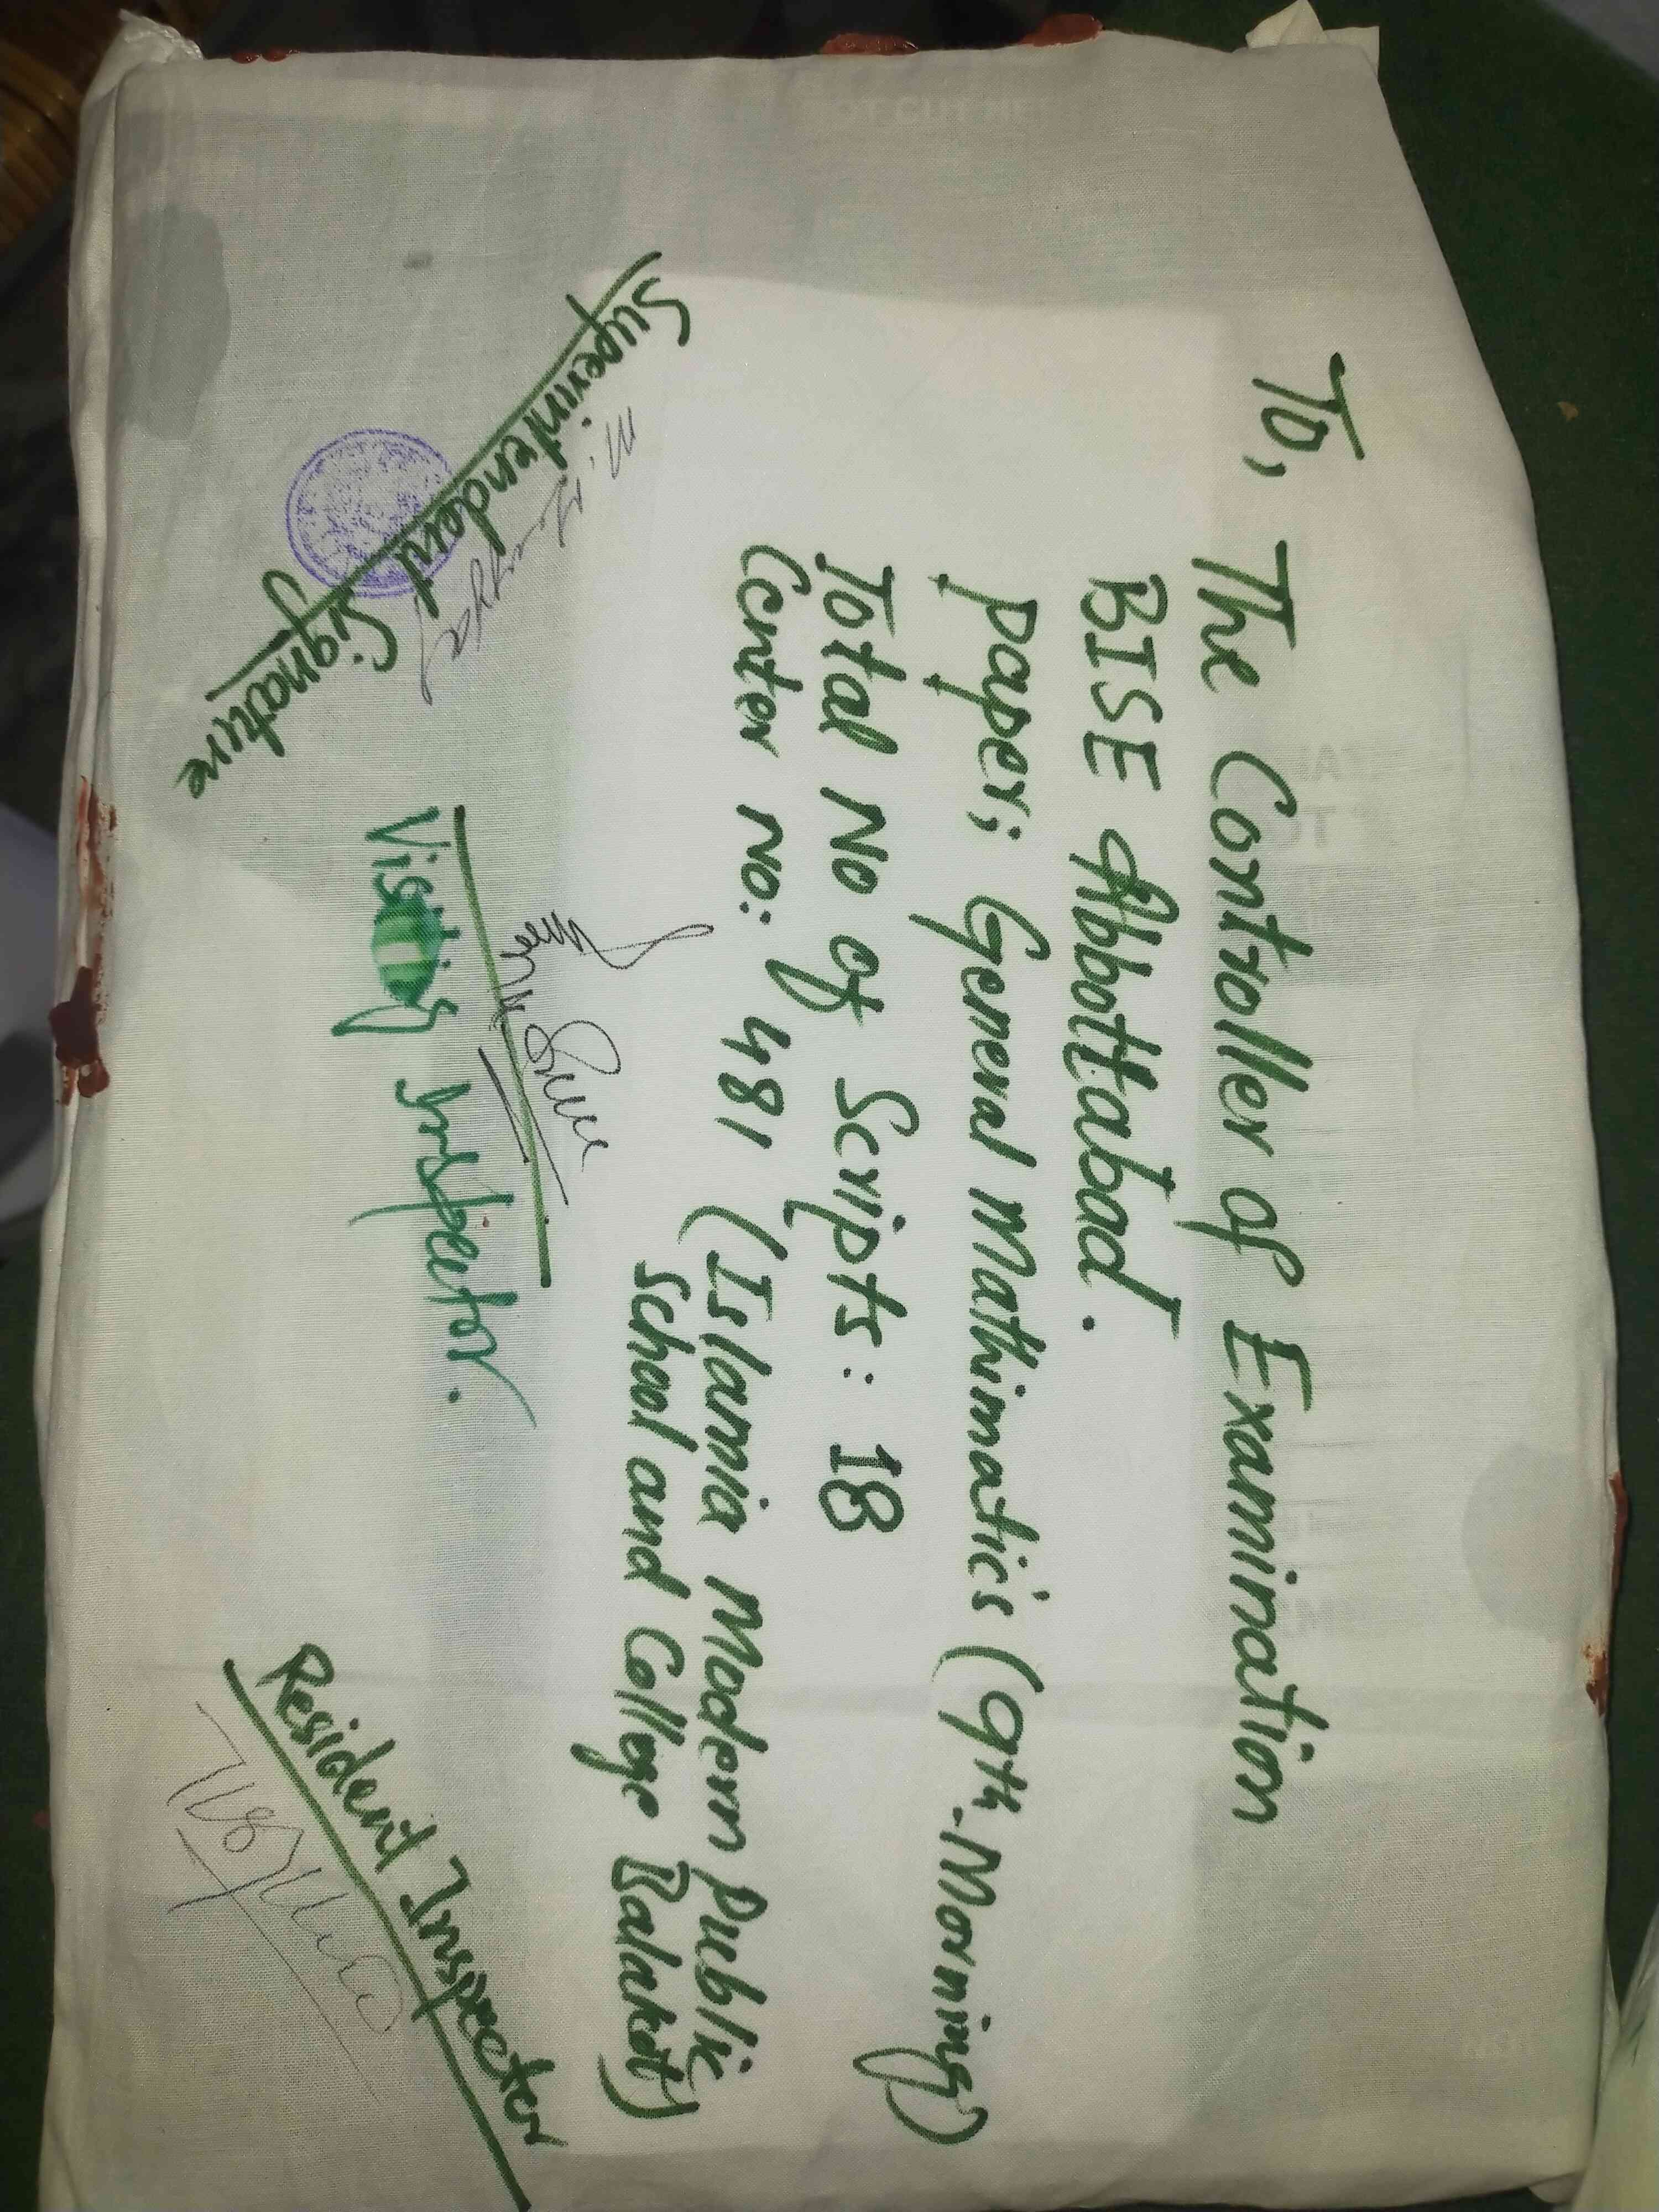 To, The Controller of Examination
BISE Abbottabad.
paper; General Mathimatics (9th-Morning)
Total No of Scripts: 18
Center No: 481 (Islamia Modern Public
School and College Balakot)
Superintendent Signature
Visiting Inspector.
Resident Inspector